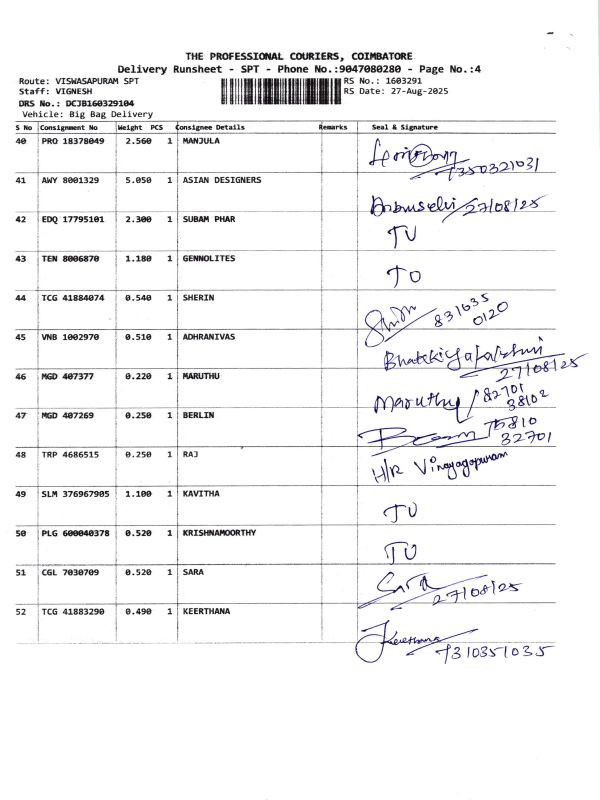 THE PROFESSIONAL COURIERS, COIMBATORE
Delivery Runsheet - SPT - Phone No.:9047080280 - Page No.:4
Route: VISWASAPURAM SPT RS No.: 1603291
Staff: VIGNESH RS Date: 27-Aug-2025
DRS No.: DCJB160329104
Vehicle: Big Bag Delivery
S No Consignment No Weight PCS Consignee Details Remarks Seal & Signature
40 PRO 18378049 2.560 1 MANJULA
7350321031
41 AWY 8001329 5.050 1 ASIAN DESIGNERS
27/08/25
42 EDQ 17795101 2.300 1 SUBAM PHAR
TU
43 TEN 8006870 1.180 1 GENNOLITES
TO
44 TCG 41884074 0.540 1 SHERIN
831635
0120
45 VNB 1002970 0.510 1 ADHRANIVAS
27/08/25
46 MGD 407377 0.220 1 MARUTHU
Maruthu 82701
38102
47 MGD 407269 0.250 1 BERLIN
32701
48 TRP 4686515 0.250 1 RAJ
H/R Vinayagapuram
49 SLM 376967905 1.100 1 KAVITHA
TU
50 PLG 600040378 0.520 1 KRISHNAMOORTHY
TU
51 CGL 7030709 0.520 1 SARA
Sara
27/08/25
52 TCG 41883290 0.490 1 KEERTHANA
Keerthana
7310351035